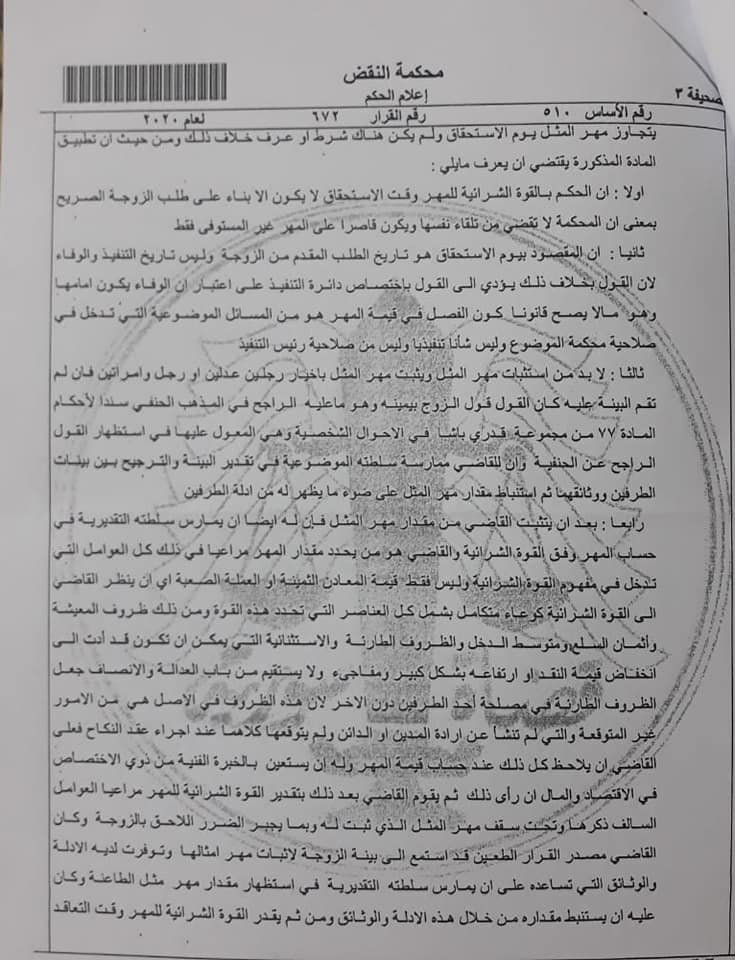 محكمة النقض
إعلام الحكم
صحيفة ٣
رقم الأساس ٥١٠ رقم القرار ٦٧٢ لعام ٢٠٢٠
يتجاوز مهر المثل يوم الاستحقاق ولم يكن هناك شرط او عرف خلاف ذلك ومن حيث ان تطبيق
المادة المذكورة يقتضي ان يعرف مايلي :
اولا : ان الحكم بالقوة الشرائية للمهر وقت الاستحقاق لا يكون الا بناء على طلب الزوجة الصريح
بمعنى ان المحكمة لا تقضي من تلقاء نفسها ويكون قاصرا على المهر غير المستوفى فقط
ثانيا : ان المقصود بيوم الاستحقاق هو تاريخ الطلب المقدم من الزوجة وليس تاريخ التنفيذ والوفاء
لان القول بخلاف ذلك يؤدي الى القول بإختصاص دائرة التنفيذ على اعتبار ان الوفاء يكون امامها
وهو مالا يصح قانونا كون الفصل في قيمة المهر هو من المسائل الموضوعية التي تدخل في
صلاحية محكمة الموضوع وليس شأنا تنفيذيا وليس من صلاحية رئيس التنفيذ
ثالثا : لا بد من استثبات مهر المثل ويثبت مهر المثل بأخبار رجلين عدلين او رجل وامراتين فان لم
تقم البينة عليه كان القول قول الزوج بيمينه وهو ماعليه الراجح في المذهب الحنفي سندا لأحكام
المادة ٧٧ من مجموعة قدري باشا في الاحوال الشخصية وهي المعول عليها في استظهار القول
الراجح عن الحنفية وان للقاضي ممارسة سلطته الموضوعية في تقدير البينة والترجيح بين بينات
الطرفين ووثائقهما ثم إستنباط مقدار مهر المثل على ضوء ما يظهر له من ادلة الطرفين
رابعا : بعد ان يتثبت القاضي من مقدار مهر المثل فإن له ايضا ان يمارس سلطته التقديرية في
حساب المهر وفق القوة الشرائية والقاضي هو من يحدد مقدار المهر مراعيا في ذلك كل العوامل التي
تدخل في مفهوم القوة الشرائية وليس فقط قيمة المعادن الثمينة او العملة الصعبة اي ان ينظر القاضي
الى القوة الشرائية كوعاء متكامل يشمل كل العناصر التي تحدد هذه القوة ومن ذلك ظروف المعيشة
وأثمان السلع ومتوسط الدخل والظروف الطارئة والاستثنائية التي يمكن ان تكون قد أدت الى
انخفاض قيمة النقد او ارتفاعه بشكل كبير ومفاجىء ولا يستقيم من باب العدالة والانصاف جعل
الظروف الطارئة في مصلحة أحد الطرفين دون الاخر لان هذه الظروف في الاصل هي من الامور
غير المتوقعة والتي لم تنشأ عن إرادة المدين او الدائن ولم يتوقعها كلاهما عند اجراء عقد النكاح فعلى
القاضي ان يلاحظ كل ذلك عند حساب قيمة المهر وله إن يستعين بالخبرة الفنية من ذوي الاختصاص
في الاقتصاد والمال ان رأى ذلك ثم يقوم القاضي بعد ذلك بتقدير القوة الشرائية للمهر مراعيا العوامل
السالف ذكرها وتحت سقف مهر المثل الذي ثبت له وبما يجبر الضرر اللاحق بالزوجة وكان
القاضي مصدر القرار الطعين قد استمع الى بينة الزوجة لاثبات مهر امثالها وتوفرت لديه الادلة
والوثائق التي تساعده على ان يمارس سلطته التقديرية في استظهار مقدار مهر مثل الطاعنة وكان
عليه ان يستنبط مقداره من خلال هذه الادلة والوثائق ومن ثم يقدر القوة الشرائية للمهر وقت التعاقد